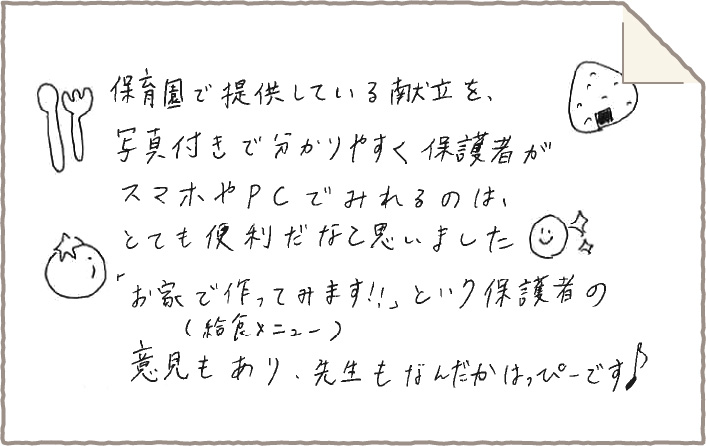 保育園で提供している献立を、
写真付きで分かりやすく保護者が
スマホやPCでみれるのは、
とても便利だなと思いました
「お家で作ってみます!!」という保護者の
(給食メニュー)
意見もあり、先生もなんだかはっぴーです♪